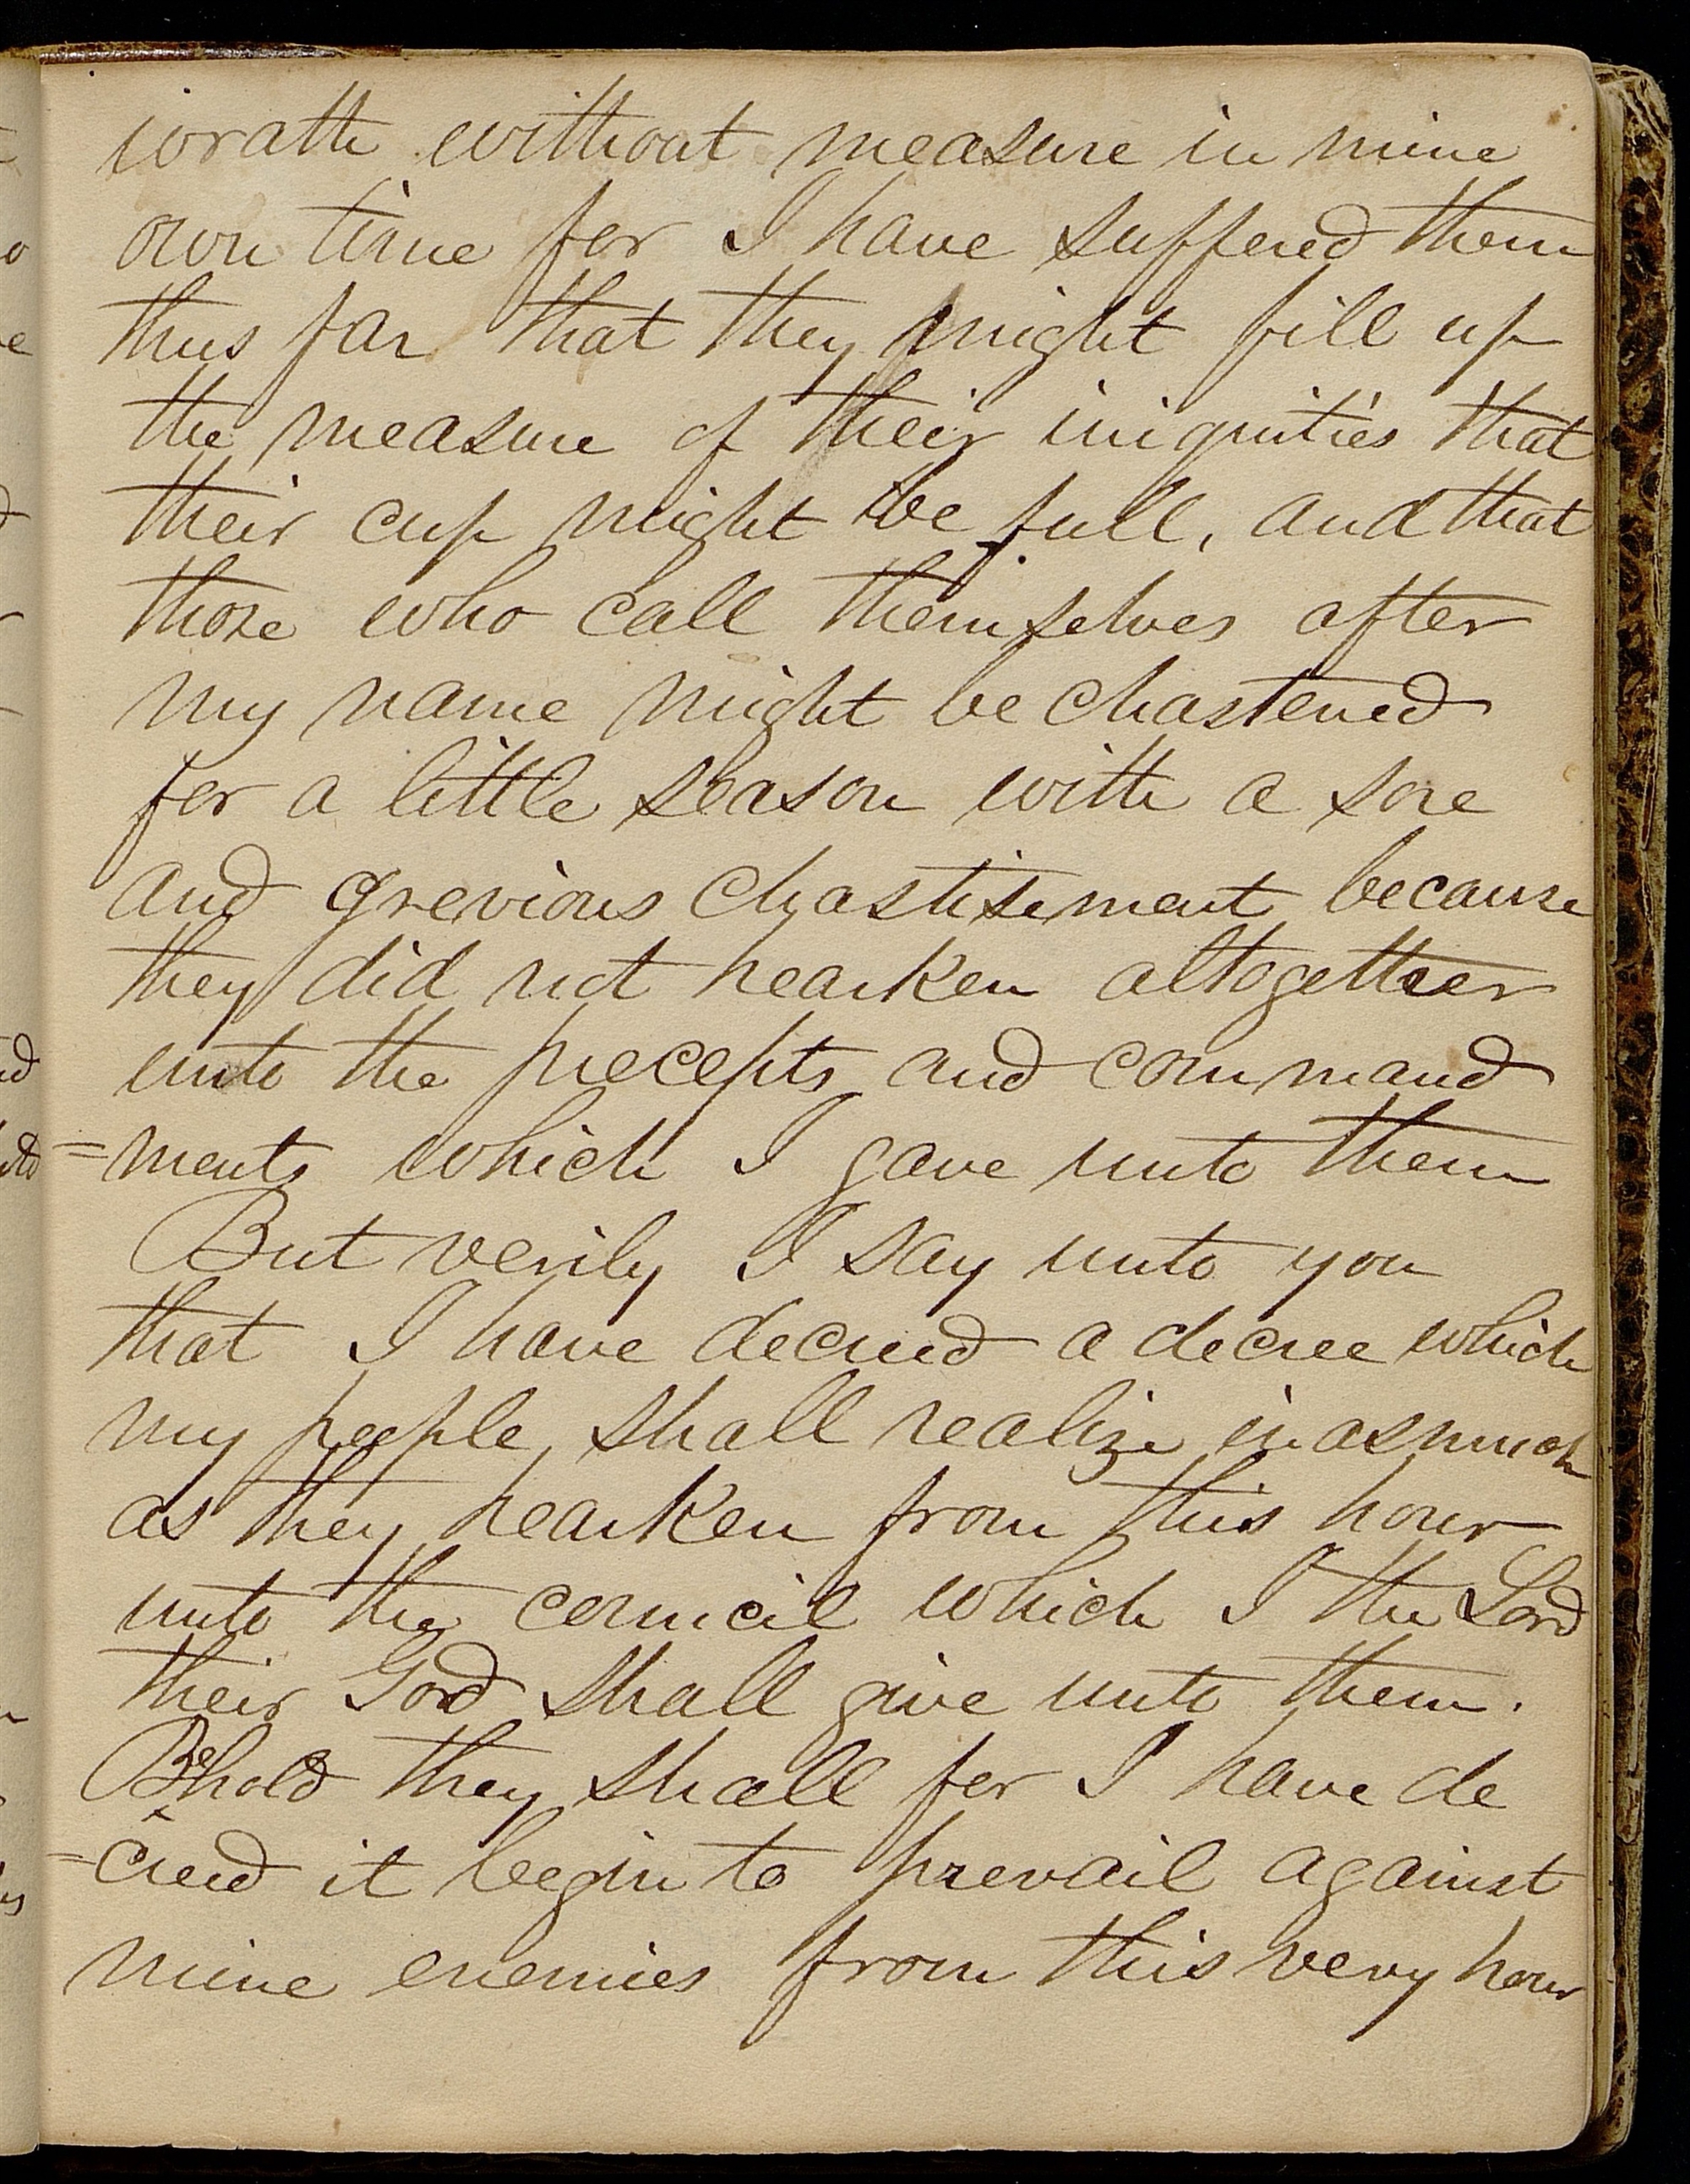 wrath without measure in mine
own time for I have suffered them
thus far that they might fill up
the measure of their iniquities that
their cup might be full, and that
those who call themselves after
my name might be chastened
for a little season with a sore
and grevious chastisement because
they did not hearken altogether
unto the precepts and command
=ments which I gave unto them
But verily I say unto you
that I have decreed a decree which
my people shall realize inasmuch
as they hearken from this hour
unto the council which I the Lord
their God shall give unto them.
Behold they shall for I have de
=creed it begin to prevail against
mine enemies from this very hour